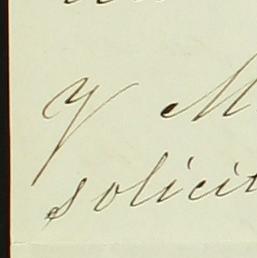 y M
solicit